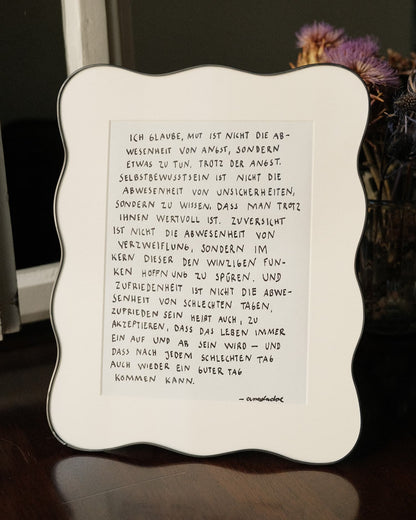 ICH GLAUBE, MUT IST NICHT DIE AB-
WESENHEIT VON ANGST, SONDERN
ETWAS ZU TUN, TROTZ DER ANGST.
SELBSTBEWUSSTSEIN IST NICHT DIE
ABWESENHEIT VON UNSICHERHEITEN,
SONDERN ZU WISSEN, DASS MAN TROTZ
IHNEN WERTVOLL IST. ZUVERSICHT
IST NICHT DIE ABWESENHEIT VON
VERZWEIFLUNG, SONDERN IM
KERN DIESER DEN WINZIGEN FUN-
KEN HOFFNUNG ZU SPÜREN. UND
ZUFRIEDENHEIT IST NICHT DIE ABWE-
SENHEIT VON SCHLECHTEN TAGEN,
ZUFRIEDEN SEIN HEIẞT AUCH, ZU
AKZEPTIEREN, DASS DAS LEBEN IMMER
EIN AUF UND AB SEIN WIRD – UND
DASS NACH JEDEM SCHLECHTEN TAG
AUCH WIEDER EIN GUTER TAG
KOMMEN KANN.